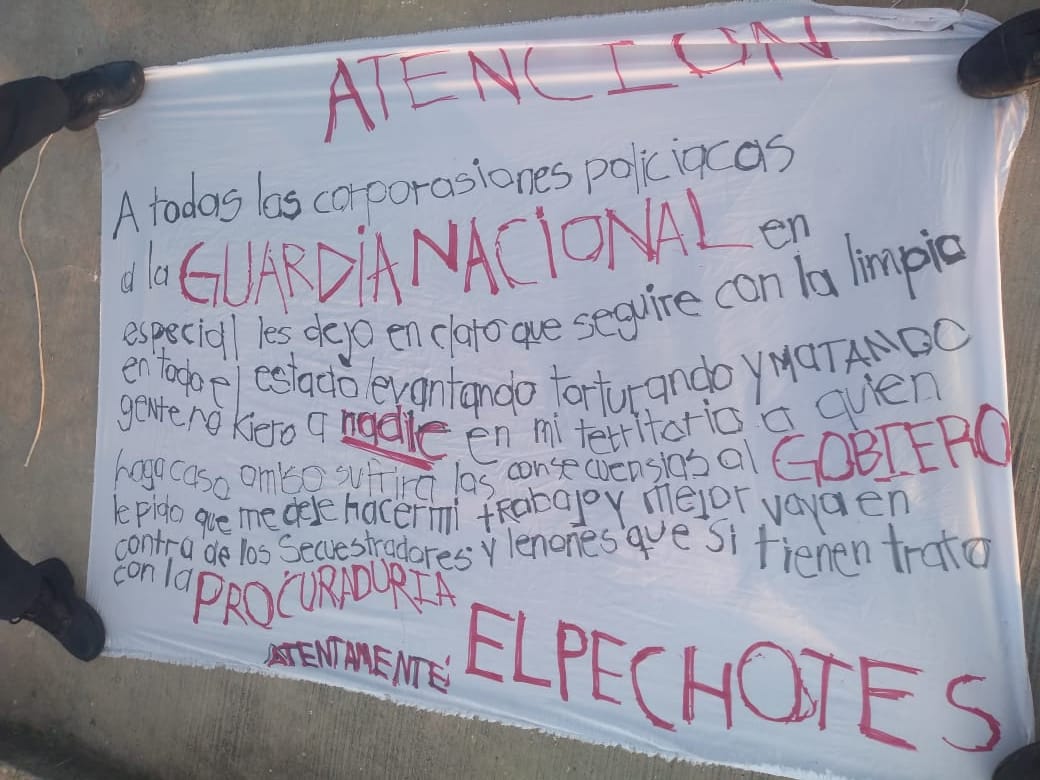 ATENCION
A todas las corporasiones policiacas
a la GUARDIA NACIONAL en
especial les dejo en claro que seguire con la limpia
en todo el estado levantando torturando y MATANDO
gente no kiero a nadie en mi territorio a quien
haga caso omiso sufrira las consecuensias al GOBIERO
le pido que me deje hacer mi trabajo y mejor vaya en
contra de los Secuestradores y lenones que si tienen trato
con la PROCURADURIA
ATENTAMENTE EL PECHOTES